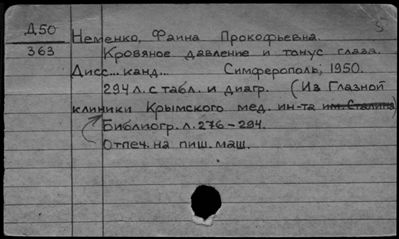 Д50
363
5
Неменко, Фаина Прокофьевна.
Кровяное давление и тонус глаза.
Дисс... канд... Симферополь, 1950.
294 л. с табл. и диагр. (Из Глазной
клиники Крымского мед. ин-та им. Сталина)
Библиогр. л. 276-294.
Отпеч. на пиш. маш.